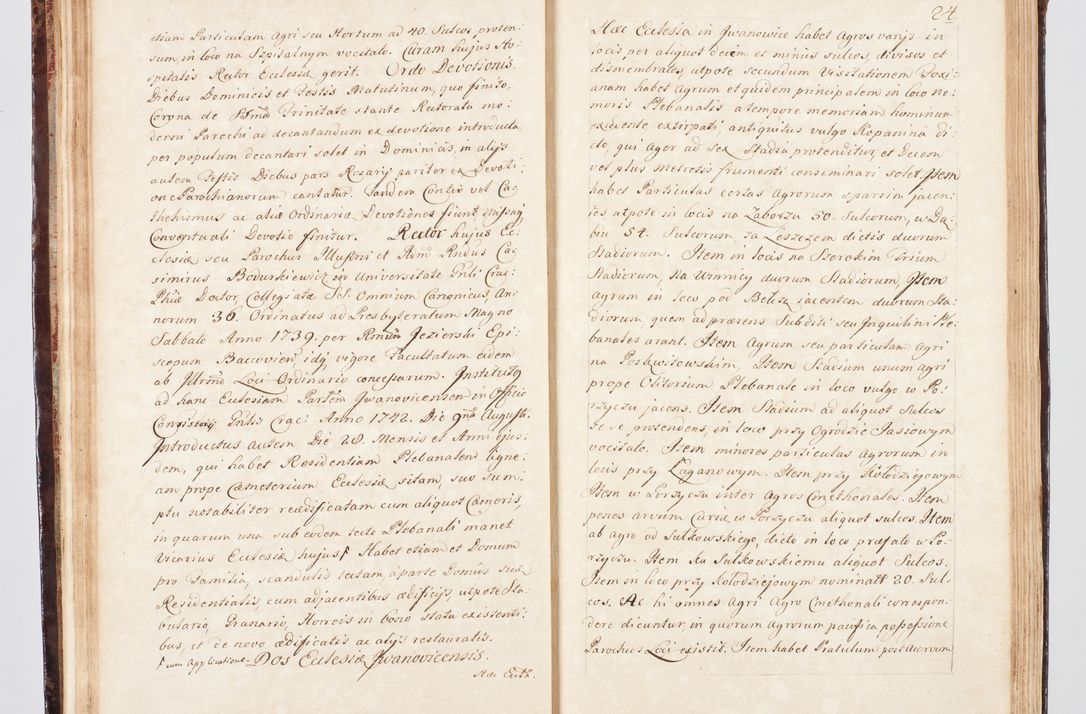 etiam Particulam Agri seu Hortum ad 40. Sulcos proten:
sum, in loco na Szpitalnym vocitato. Curam hujus Ho-
spitalis Rector Ecclesiæ gerit. Ordo Devotionis.
Diebus Dominicis et Festis Matutinum, quo finito,
Corona de SSma Trinitate stante Rectorata mo:
derni Parochi ad decantandum ex devotione introducta
per populum decantari solet in Dominicis, in alijs
autem Festis Diebus pars Rosarij pariter ex Devoti:
one Parochianorum cantatur. Tandem Contio vel Ca:
thehismus ac aliæ Ordinariæ Devotiones fiunt, Missaq
Conventuali Devotio finitur. Rector hujus Ec:
clesiæ seu Parochus Illustris et Adm Rndus Ca:
simirus Bodurkiewicz in Universitate Gnli Crac:
Phiæ Doctor, Collegiatæ SS. Omnium Canonicus, An:
norum 36. Ordinatus ad Presbyteratum Magno
Sabbato Anno 1739. per Rmum Jezierski Epi:
scopum Baccovien, idq vigore Facultatum eidem
ab Illrmo Loci Ordinario concessarum. Institutus
ad hanc Ecclesiam Parlem Jwanovicensem in Officio
Consistorij Gnlis Crac: Anno 1742. Die 9na Augusti.
Introductus autem Die 28. Mensis et Anni ejus:
dem, qui habet Residentiam Plebanalem ligne:
am prope Cæmeterium Ecclesiæ sitam, suo sum:
ptu notabiliter reædificatam cum aliquot Cameris,
in quarum una sub eodem tecto Plebanali manet
Vicarius Ecclesiæ hujus. Habet etiam et Domum
pro Familia, scandulis tectam, à parte Domus suæ
Residentialis, cum adjacentibus ædificijs, utpote Sta:
bulario, Granario, Horreis in bono statu existenti:
bus, et de novo ædificatis ac alijs restauratis.
cum Applicatione. Dos Ecclesiæ Jwanovicensis.
Hæc Eccla.
24.
Hæc Ecclesia in Jwanowice habet Agros varijs in
locis per aliquot decim et minus sulcos, divisos et
dismembratos, utpote secundum Visitationem Foxi:
anam habet Agrum et quidem principalem in loco ne:
moris Plebanalis a tempore memoriam hominum
excedente extirpati, antiquitus vulgo Kopanina di:
cto, qui Ager ad sex Stadia protenditur, et Decem
vel plus Metretis frumenti conseminari solet. Item
habet Particulas certas Agrorum sparsim jacen:
tes utpote in locis na Zaborzu 50. Sulcorum, w Dą:
biu 54. Sulcorum za Leszczem dictis duorum
Stadiorum. Item in locis na Szerokim Trium
Stadiorum, Na Winnicy duorum Stadiorum, Item
Agrum in loco pod Belizą jacentem duorum Sta:
diorum, quem ad præsens Subditi seu Inquilini Ple:
banales arant. Item Agrum seu particulam Agri
na Poskwitowskim, Item Stadium unum agri
prope Olitorium Plebanale in loco vulgo w Po:
rzyczu jacens. Item Stadium ad aliquot Sulcos
se se protendens, in loco przy Ogrodzie Jasiowym
vocitato. Item minores particulas Agrorum in
locis przy Łaganowym. Item przy Kołodziejowym
Item w Porzyczu inter Agros Cmethonales. Item
penes arvum Curiæ w Porzyczu aliquot sulcos. Item
ab agro od Sułkowskiego, dicto in loco præfato w Po:
rzyczu. Item ku Sułkowskiemu aliquot Sulcos.
Item in loco przy Kołodziejowym nominatt 20. Sul:
cos. Ac hi omnes Agri Agro Cmethonali correspon:
dere dicuntur, in quorum Agrorum pacifica possessione
Parochus Loci existit. Item habet Pratulum post Acervum